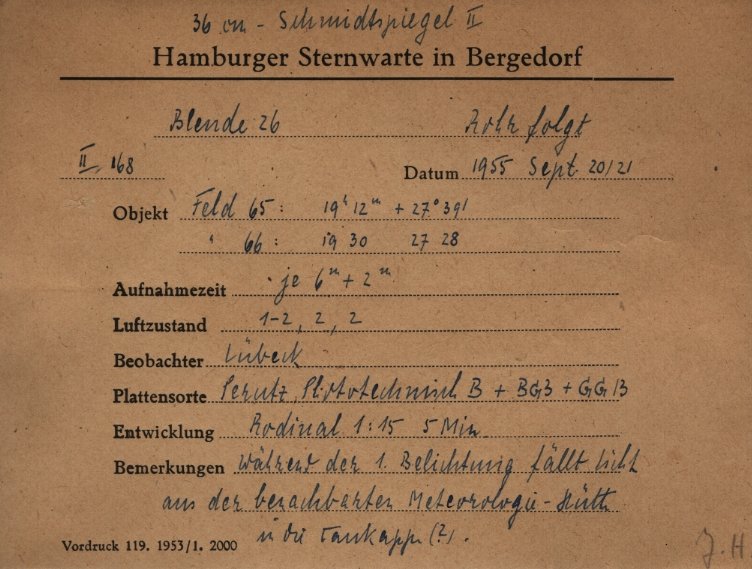 36 cm - Schmidtspiegel II
Hamburger Sternwarte in Bergedorf
Blende 26 Rohr folgt
II, 168 Datum 1955 Sept. 20/21
Objekt Feld 65: 19ʰ 12ᵐ + 27° 39'
" 66: 19 30 27 28
Aufnahmezeit je 6ᵐ + 2ᵐ
Luftzustand 1-2, 2, 2
Beobachter Lübeck
Plattensorte Perutz, Phototechnisch B + BG3 + GG13
Entwicklung Rodinal 1:15 5 Min
Bemerkungen Während der 1. Belichtung fällt Licht
aus der benachbarten Meteorologie-Hütte
in die Taukappe (?).
Vordruck 119. 1953/1. 2000
J. H